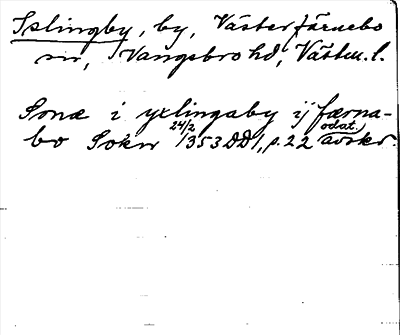 Islingby, by, Västerfärnebo
sn, Vangsbro hd, Västm. l.
Sonæ i yxlingaby ij færna-
bo Sokn 24/2 1353 DD 1, p. 22 odat. avskr.